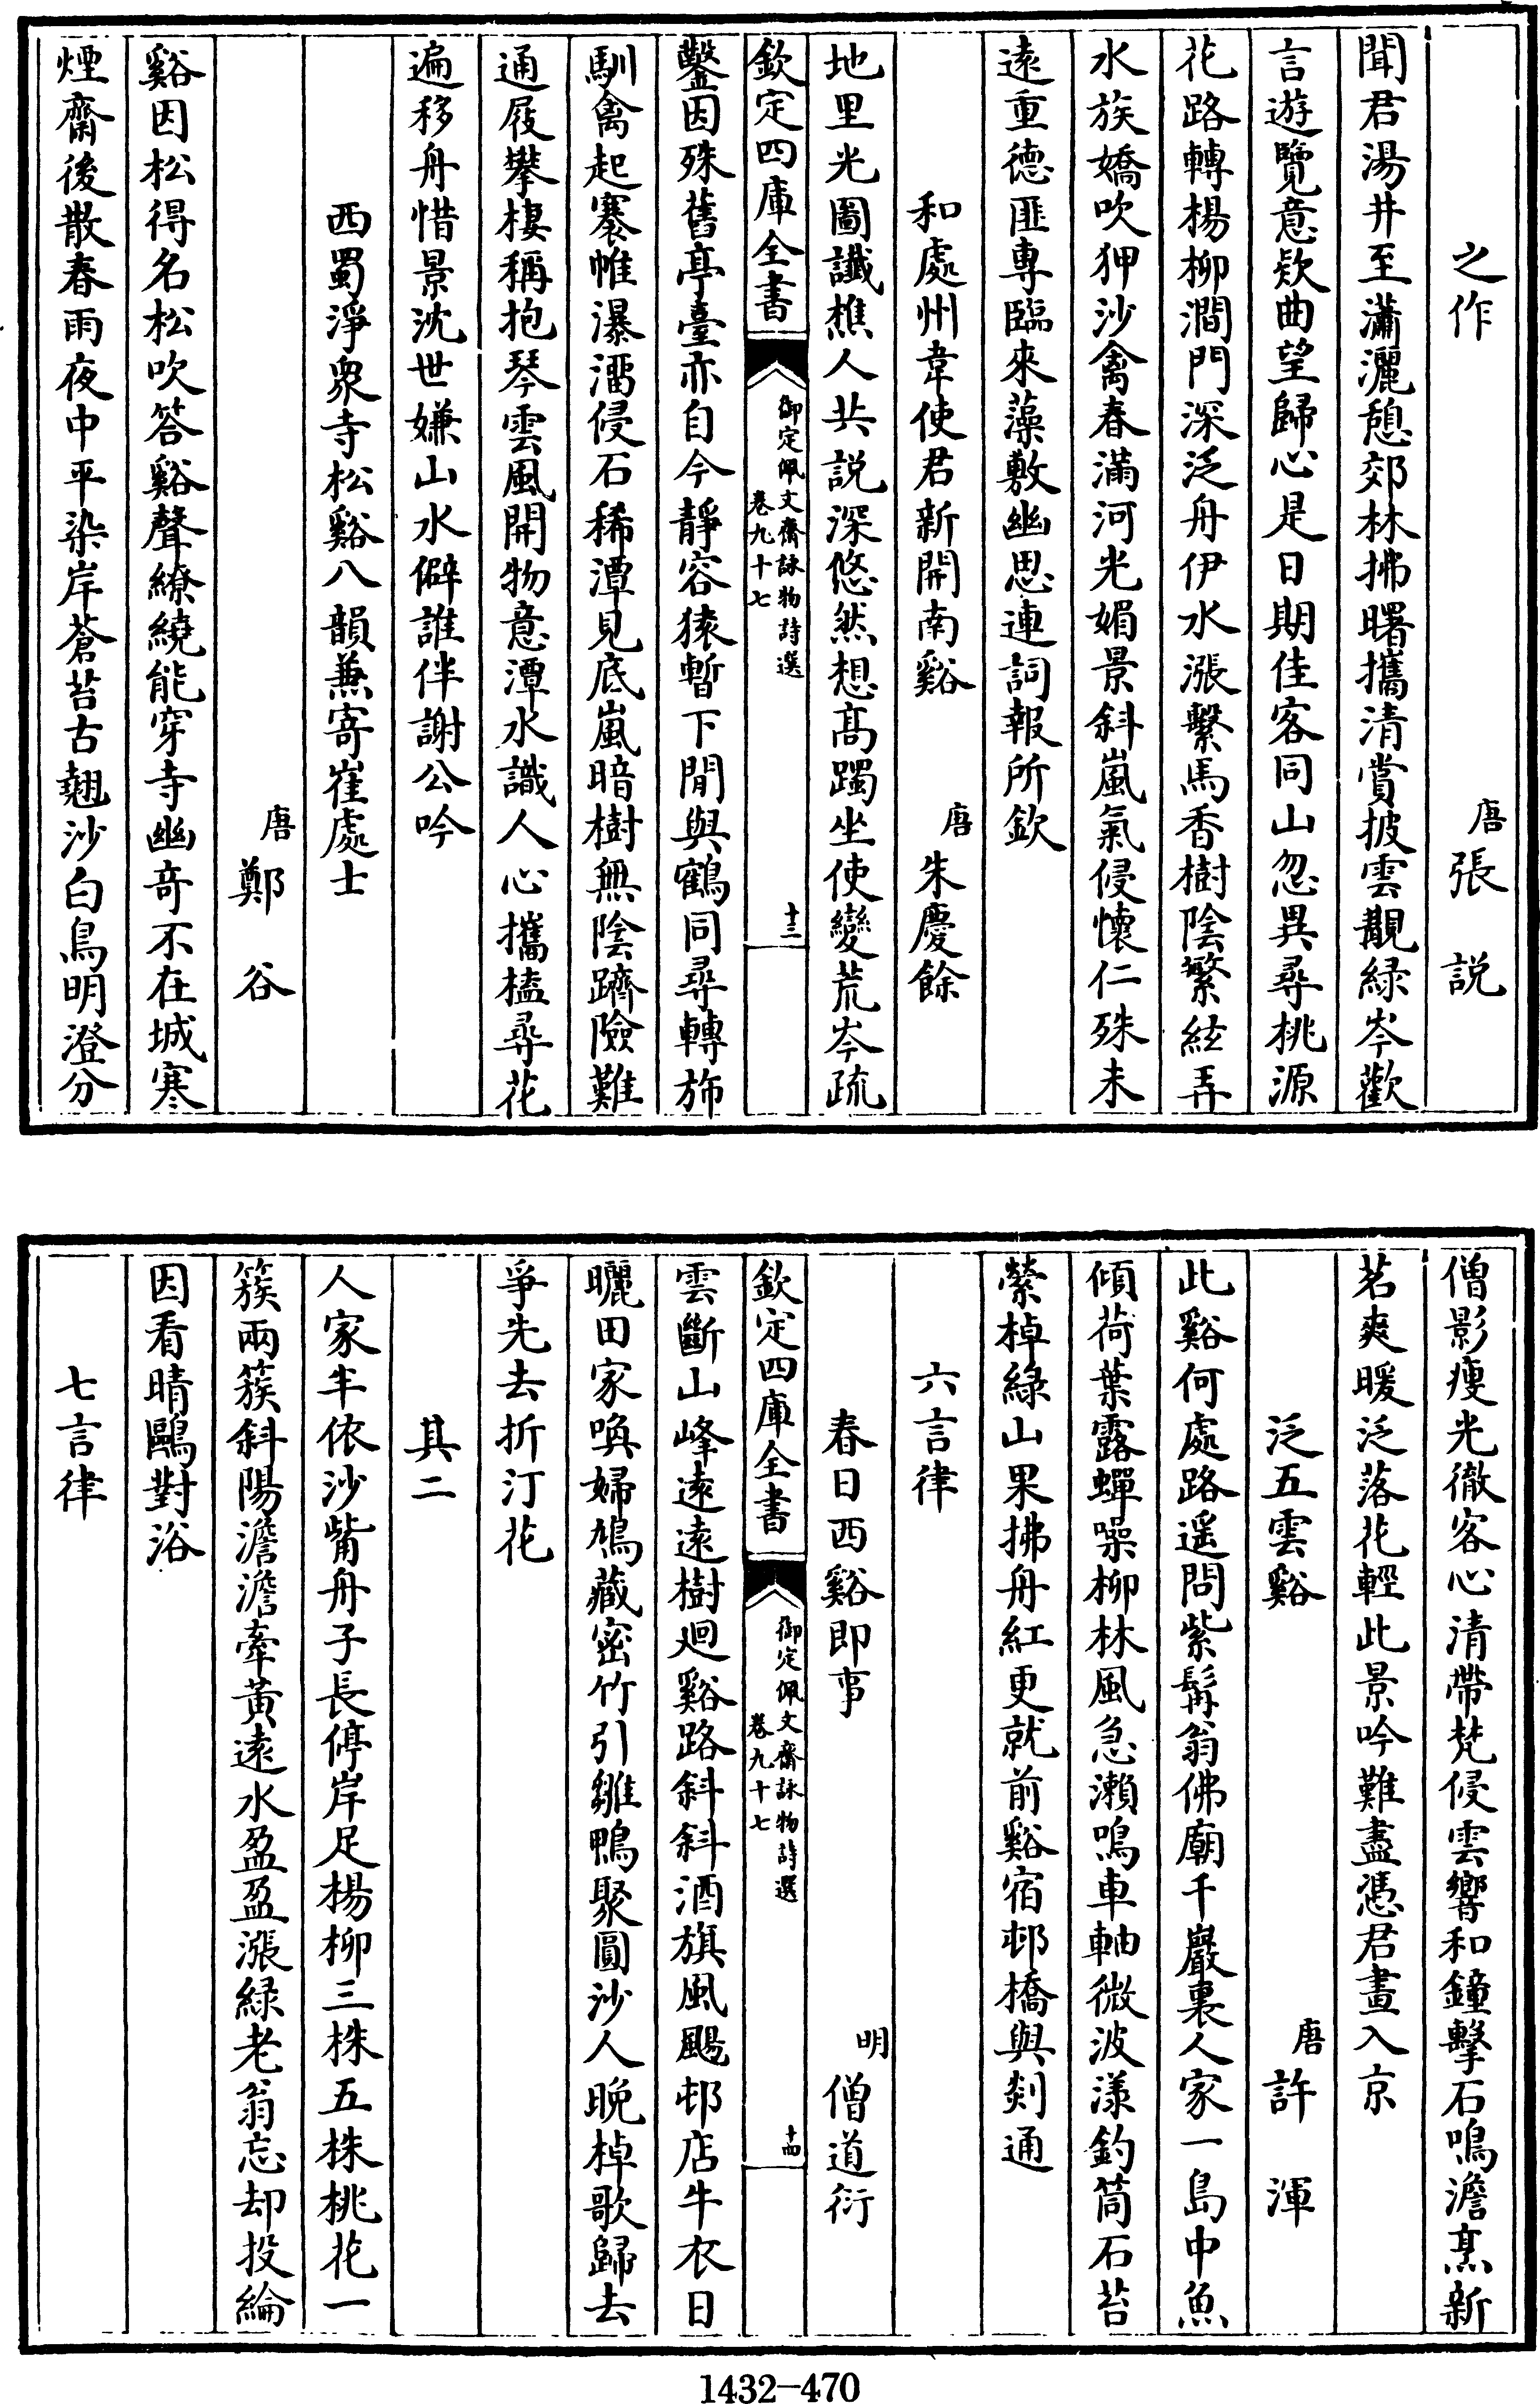 之作
唐張說
聞君湯井至瀟灑憩郊林拂曙攜清賞披雲覯緑岑歡
言遊覽意欵曲望歸心是日期佳客同山忽異尋桃源
花路轉楊柳澗門深泛舟伊水漲繫馬香樹陰繁絃弄
水族嬌吹狎沙禽春滿河光媚景斜嵐氣侵懷仁殊未
遠重德匪專臨來藻敷幽思連詞報所欽
和處州韋使君新開南谿
唐朱慶餘
地里光圖讖樵人共説深悠然想髙躅坐使變荒岑疏
欽定四庫全書
御定佩文齋詠物詩選
卷九十七
十三
鑿因殊舊亭臺亦自今靜容猿暫下閒與鶴同尋轉斾
馴禽起褰帷瀑溜侵石稀潭見底嵐暗樹無陰躋險難
通屐攀棲稱抱琴雲風開物意潭水識人心攜榼尋花
遍移舟惜景沈世嫌山水僻誰伴謝公吟
西蜀淨衆寺松谿八韻兼寄崔處士
唐鄭谷
谿因松得名松吹答谿聲繚繞能穿寺幽竒不在城寒
煙齋後散春雨夜中平染岸蒼苔古翹沙白鳥明澄分
僧影瘦光徹客心清帶梵侵雲響和鐘擊石鳴澹烹新
茗爽暖泛落花輕此景吟難盡憑君畫入京
泛五雲谿
唐許渾
此谿何處路遥問紫髯翁佛廟千巖裏人家一島中魚
傾荷葉露蟬噪柳林風急瀨鳴車軸微波漾釣筒石苔
縈棹緑山果拂舟紅更就前谿宿邨橋與剡通
六言律
春日西谿即事
明僧道衍
欽定四庫全書
御定佩文齋詠物詩選
卷九十七
十四
雲斷山峰遠遠樹迴谿路斜斜酒旗風颺邨店牛衣日
曬田家喚婦鳩藏密竹引雛鴨聚圓沙人晚棹歌歸去
爭先去折汀花
其二
人家半依沙觜舟子長停岸足楊柳三株五株桃花一
簇兩簇斜陽澹澹牽黄遠水盈盈漲緑老翁忘却投綸
因看晴鷗對浴
七言律
1432-470